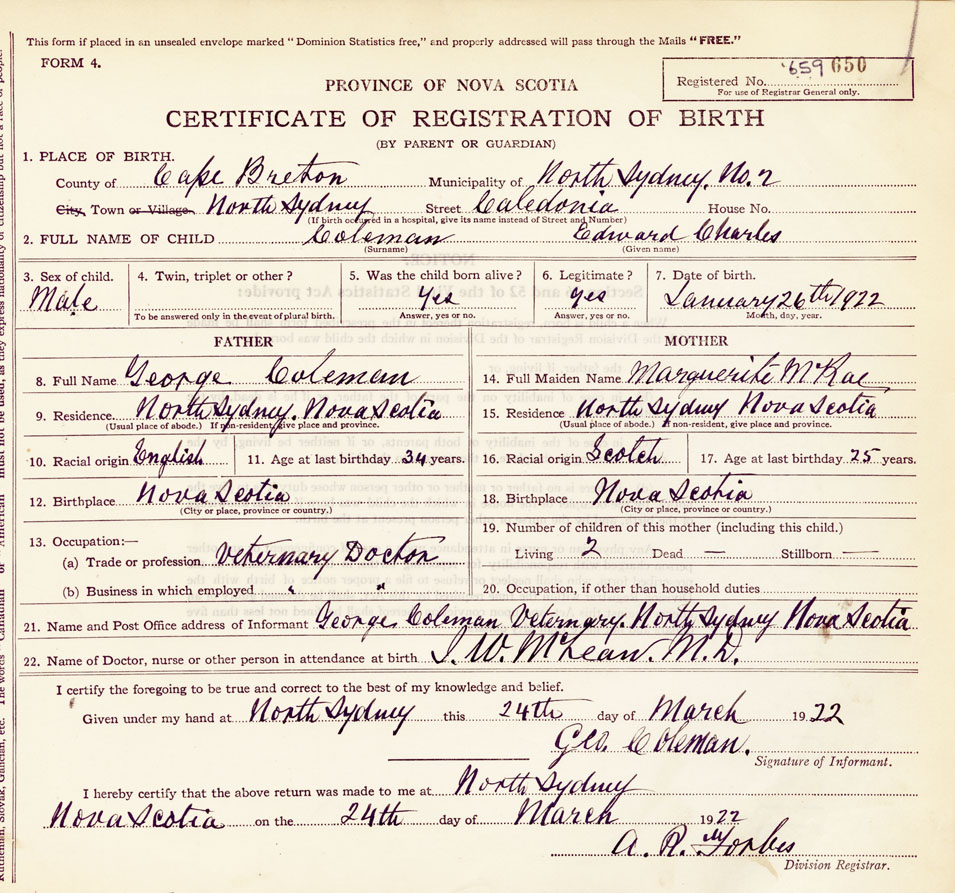 This form if placed in an unsealed envelope marked "Dominion Statistics free," and properly addressed will pass through the Mails "FREE."
FORM 4.
Registered No. 659 650
For use of Registrar General only.
PROVINCE OF NOVA SCOTIA
CERTIFICATE OF REGISTRATION OF BIRTH
(BY PARENT OR GUARDIAN)
1. PLACE OF BIRTH.
County of Cape Breton Municipality of North Sydney. No. 2
City, Town or Village North Sydney Street Caledonia House No.
(If birth occurred in a hospital, give its name instead of Street and Number)
2. FULL NAME OF CHILD Coleman Edward Charles
(Surname) (Given name)
3. Sex of child. 4. Twin, triplet or other? 5. Was the child born alive? 6. Legitimate? 7. Date of birth.
Male Yes Yes January 26th 1922
To be answered only in the event of plural birth. Answer, yes or no. Answer, yes or no. Month, day, year.
FATHER MOTHER
8. Full Name George Coleman 14. Full Maiden Name Marguerite McRae
9. Residence North Sydney. Nova Scotia 15. Residence North Sydney Nova Scotia
(Usual place of abode.) If non-resident, give place and province. (Usual place of abode.) If non-resident, give place and province.
10. Racial origin English 11. Age at last birthday 34 years. 16. Racial origin Scotch 17. Age at last birthday 25 years.
12. Birthplace Nova Scotia 18. Birthplace Nova Scotia
(City or place, province or country.) (City or place, province or country.)
19. Number of children of this mother (including this child.)
13. Occupation:—
(a) Trade or profession Veternary Doctor Living 2 Dead — Stillborn —
(b) Business in which employed " " 20. Occupation, if other than household duties
21. Name and Post Office address of Informant George Coleman Veternary. North Sydney Nova Scotia
22. Name of Doctor, nurse or other person in attendance at birth W. McLean. M.D.
I certify the foregoing to be true and correct to the best of my knowledge and belief.
Given under my hand at North Sydney this 24th day of March 1922
Geo. Coleman.
Signature of Informant.
I hereby certify that the above return was made to me at North Sydney
Nova Scotia on the 24th day of March 1922
A. R. Forbes
Division Registrar.